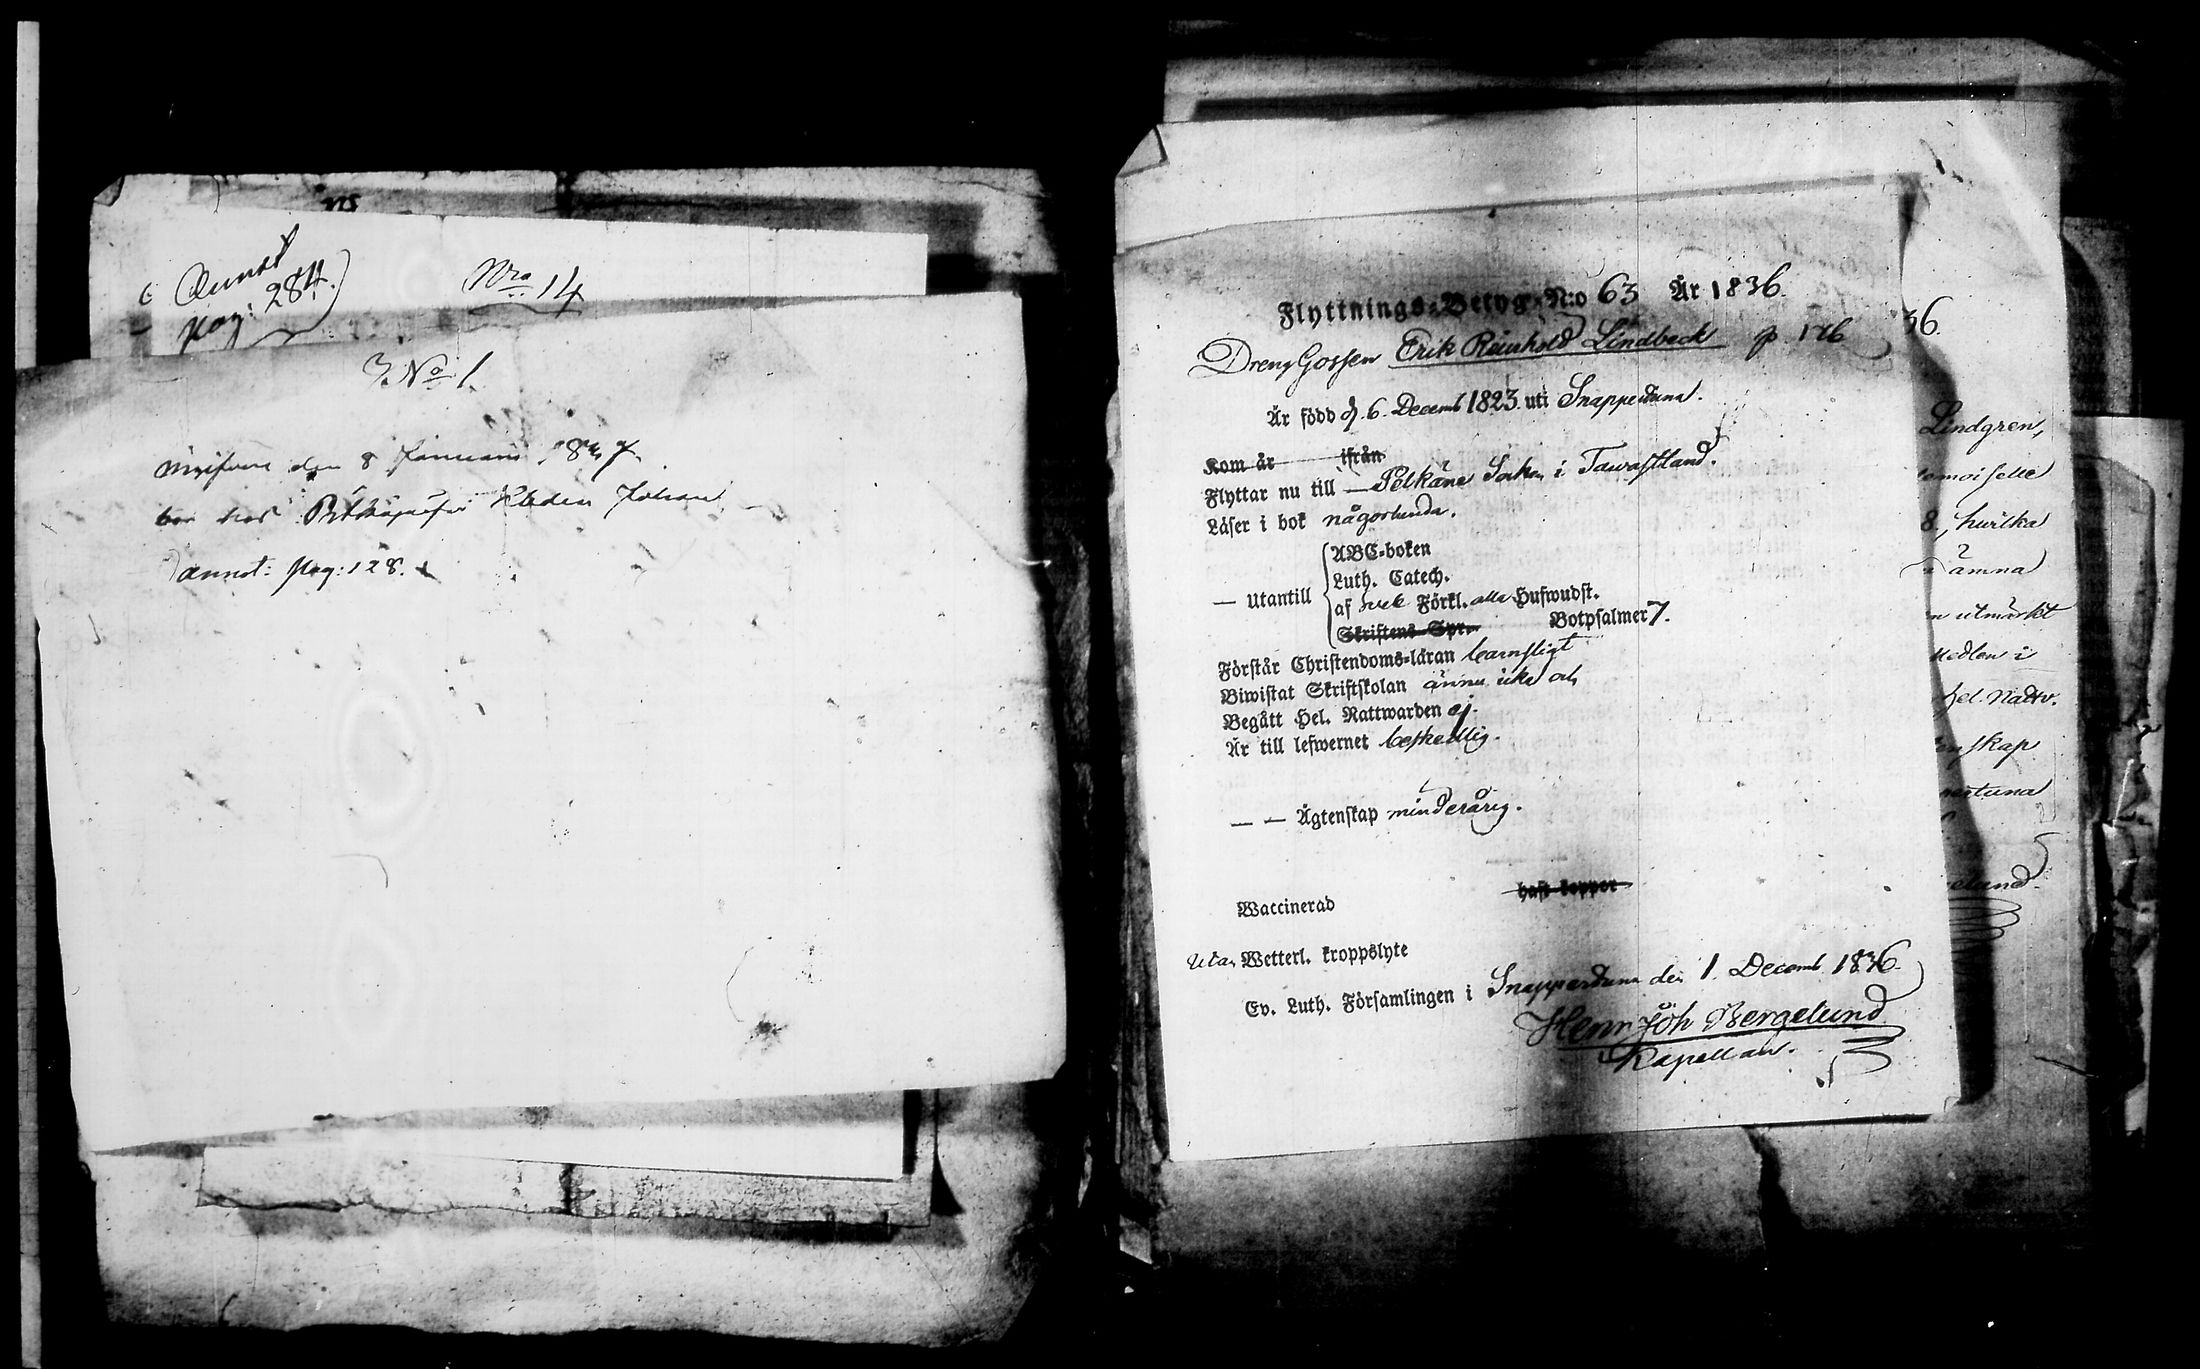 Annot
pag: 284.
Nro 14
No 1
den 8 Januarii 1837.
bor hos Johan
annot: pag: 128.
Flyttnings-Betyg N:o 63 År 1836.
Dreng Gossen Erik Reinhold Lindbeck p. 126
Är född d. 6. Decemb 1823. uti Snappertuna.
Kom år ifrån
Flyttar nu till — Pelkäne Socken i Tawastland.
Läser i bok någorlunda.
— utantill
ABC-boken
Luth. Catech.
af Förkl. alla Hufwudst.
Skriftens Spr. Botpsalmer 7.
Förstår Christendoms-läran barnsligt
Biwistat Skriftskolan ännu icke och
Begått Hel. Nattwarden ej.
Är till lefwernet beskedlig.
— — Ägtenskap minderårig.
haft koppor
Waccinerad
utan Wetterl. kroppslyte
Ev. Luth. Församlingen i Snappertuna den 1. Decemb. 1836.
Henr Joh Bergelund
Kapellan.
36.
Lindgren,
emoiselle
8., hvilka
ämna
n utmärkt
Medlen i
hel. Nattv.
enskap
pertuna
gelund.